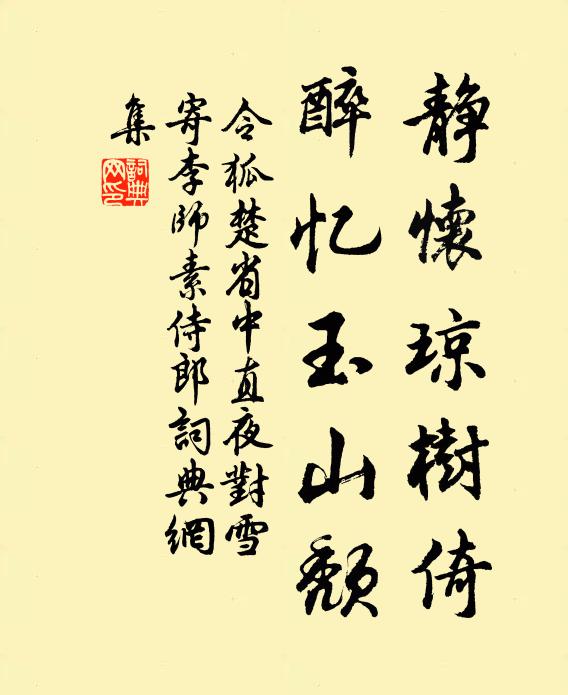 静懷琼樹倚
醉忆玉山颓
令狐楚省中直夜對雪
寄李師素侍郎詞典網
集
詞典网印